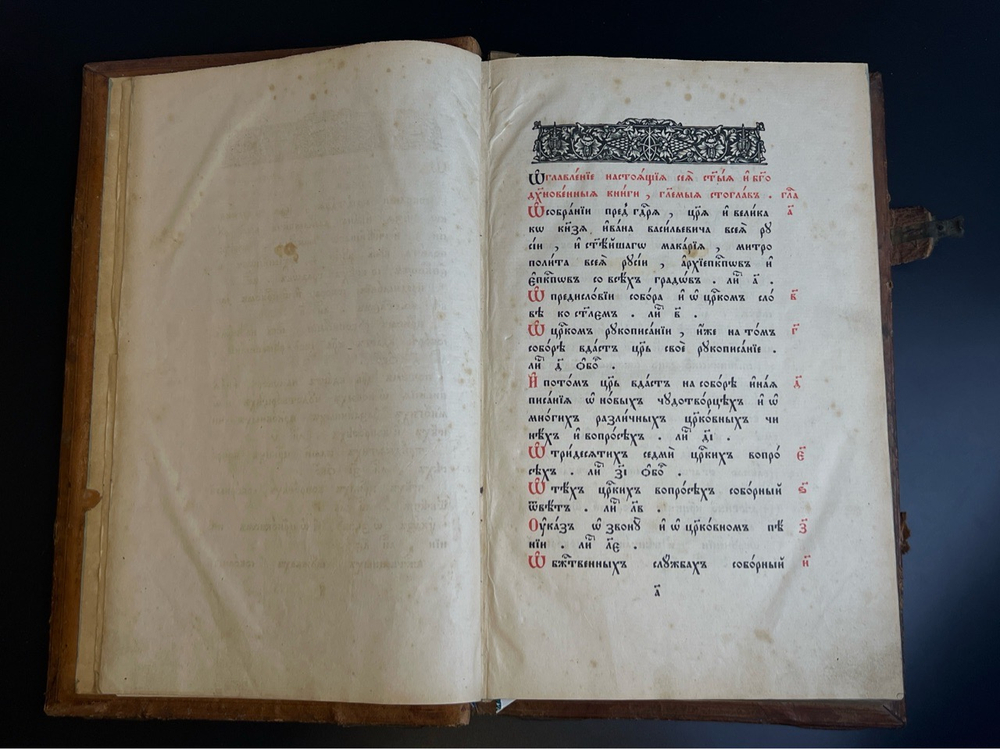 Ѡ҆главле́нїе настоѧ́щїѧ сеѧ̀ ст҃ы́ѧ и҆ бг҃о
дх҃нове́нныѧ кни́ги , гл҃емыѧ стогла́въ . гла̀
Ѡ҆ собра́нїи пред̾ гдр҃ѧ , цр҃ѧ и҆ вели́ка а҃
кѡ кн҃зѧ и҆ва́на васи́льевича всеѧ̀ рꙋ
сі́и , и҆ ст҃ѣ́йшагѡ мака́рїѧ , митро
поли́та всеѧ̀ рꙋсі́и , а҆рхїепⷭ҇кпѡвъ и҆
є҆пⷭ҇кпѡвъ со всѣ́хъ градѡ́въ . ли́ст а҃ .
Ѡ҆ предисло́вїи собо́ра и҆ ѡ҆ црⷭ҇комъ сло́ в҃
вѣ ко ст҃лемъ . ли́ст в҃ .
Ѡ҆ црⷭ҇комъ рꙋкописа́нїи , и҆́же на то́мъ г҃
собо́рѣ вда́стъ цр҃ь своѐ рꙋкописа́нїе .
ли́ст д҃ ѻ҆бо́т .
И҆ пото́мъ цр҃ь вда́стъ на собо́рѣ и҆на́ѧ д҃
писа́нїѧ ѡ҆ но́выхъ чꙋдотво́рцѣхъ и҆ ѡ҆
мно́гихъ разли́чныхъ цр҃ко́вныхъ чи
нѣ́хъ и҆ вопро́сѣхъ . ли́ст д҃і .
Ѡ҆ три́десѧтихъ седмѝ црⷭ҇кихъ вопро́ є҃
сѣхъ . ли́ст з҃і ѻ҆бо́т .
Ѡ҆ тѣ́хъ црⷭ҇кихъ вопро́сѣхъ собо́рный ѕ҃
ѿвѣ́тъ . ли́ст л҃в .
Оу҆ка́зъ ѡ҆ звонꙋ̀ и҆ ѡ҆ цр҃ко́вномъ пѣ́ з҃
нїи . ли́ст л҃є .
Ѡ҆ бж҃е́ственныхъ слꙋ́жбахъ собо́рный и҃
а҃